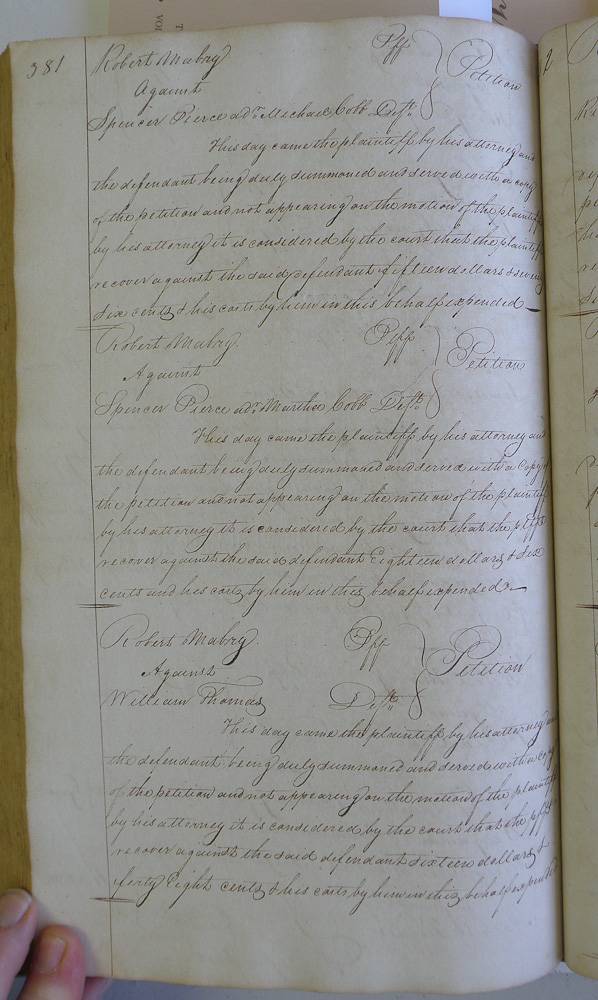 381
Robert Mabry Plff } Petition
Against
Spencer Pierce adr. Michael Cobb Deft.
This day came the plaintiff by his attorney and
the defendant being duly summoned and served with a copy
of the petition and not appearing on the motion of the plaintiff
by his attorney it is considered by the court that the plaintiff
recover against the said defendant fifteen dollars & seventy
six cents & his costs by him in this behalf expended
Robert Mabry. Plff } Petition
Against
Spencer Pierce adr. Martha Cobb Deft.
This day came the plaintiff by his attorney and
the defendant being duly summoned and served with a Copy of
the petition and not appearing on the motion of the plaintiff
by his attorney it is considered by the court that the plff
recover against the said defendant Eighteen dollars & six
cents and his costs by him in this behalf expended
Robert Mabry. Plff } Petition
Against
William Thomas Deft.
This day came the plaintiff by his attorney and
the defendant being duly summoned and served with a Copy
of the petition and not appearing on the motion of the plaintiff
by his attorney it is considered by the court that the plff
recover against the said defendant sixteen dollars &
forty Eight cents & his costs by him in this behalf expended